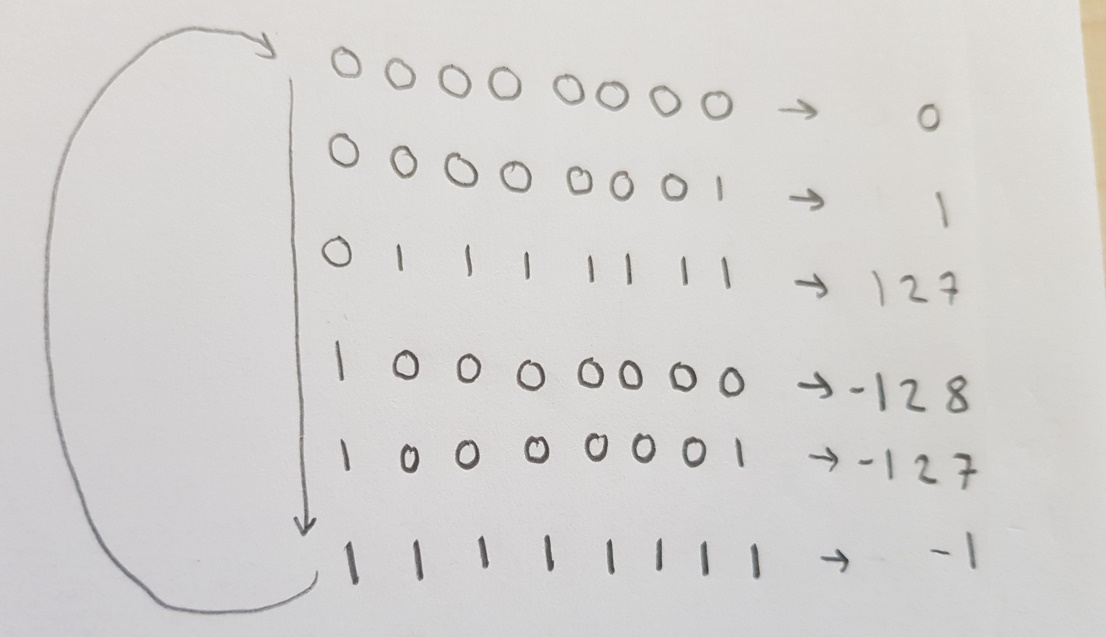 0 0 0 0 0 0 0 0 → 0
0 0 0 0 0 0 0 1 → 1
0 1 1 1 1 1 1 1 → 127
1 0 0 0 0 0 0 0 → -128
1 0 0 0 0 0 0 1 → -127
1 1 1 1 1 1 1 1 → -1